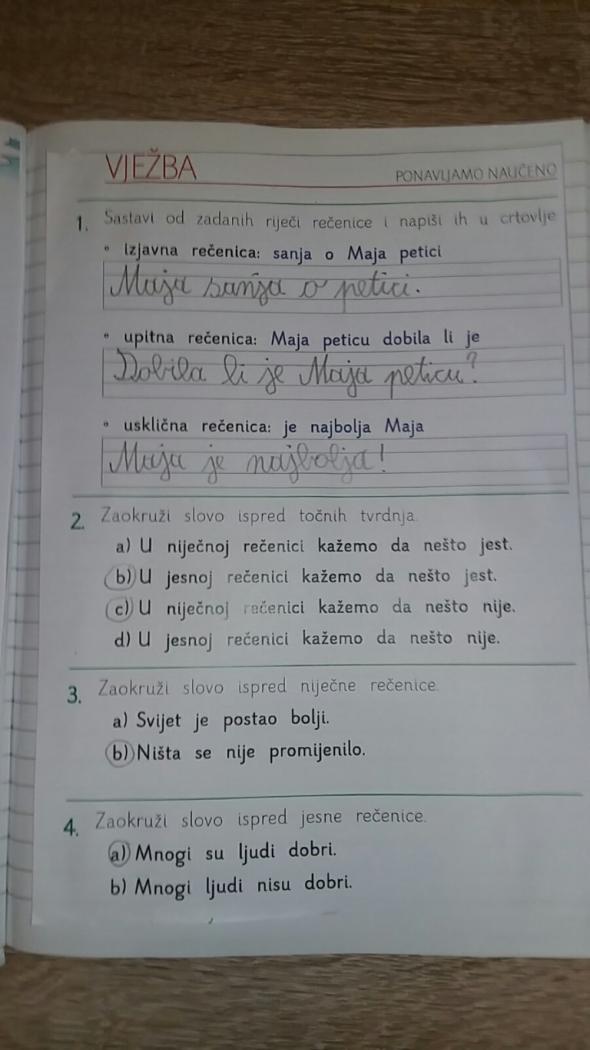 VJEŽBA
PONAVLJAMO NAUČENO
1. Sastavi od zadanih riječi rečenice i napiši ih u crtovlje
• izjavna rečenica: sanja o Maja petici
Maja sanja o petici.
• upitna rečenica: Maja peticu dobila li je
Dobila li je Maja peticu?
• usklična rečenica: je najbolja Maja
Maja je najbolja!
2. Zaokruži slovo ispred točnih tvrdnja.
a) U niječnoj rečenici kažemo da nešto jest.
b) U jesnoj rečenici kažemo da nešto jest.
c) U niječnoj rečenici kažemo da nešto nije.
d) U jesnoj rečenici kažemo da nešto nije.
3. Zaokruži slovo ispred niječne rečenice.
a) Svijet je postao bolji.
b) Ništa se nije promijenilo.
4. Zaokruži slovo ispred jesne rečenice.
a) Mnogi su ljudi dobri.
b) Mnogi ljudi nisu dobri.